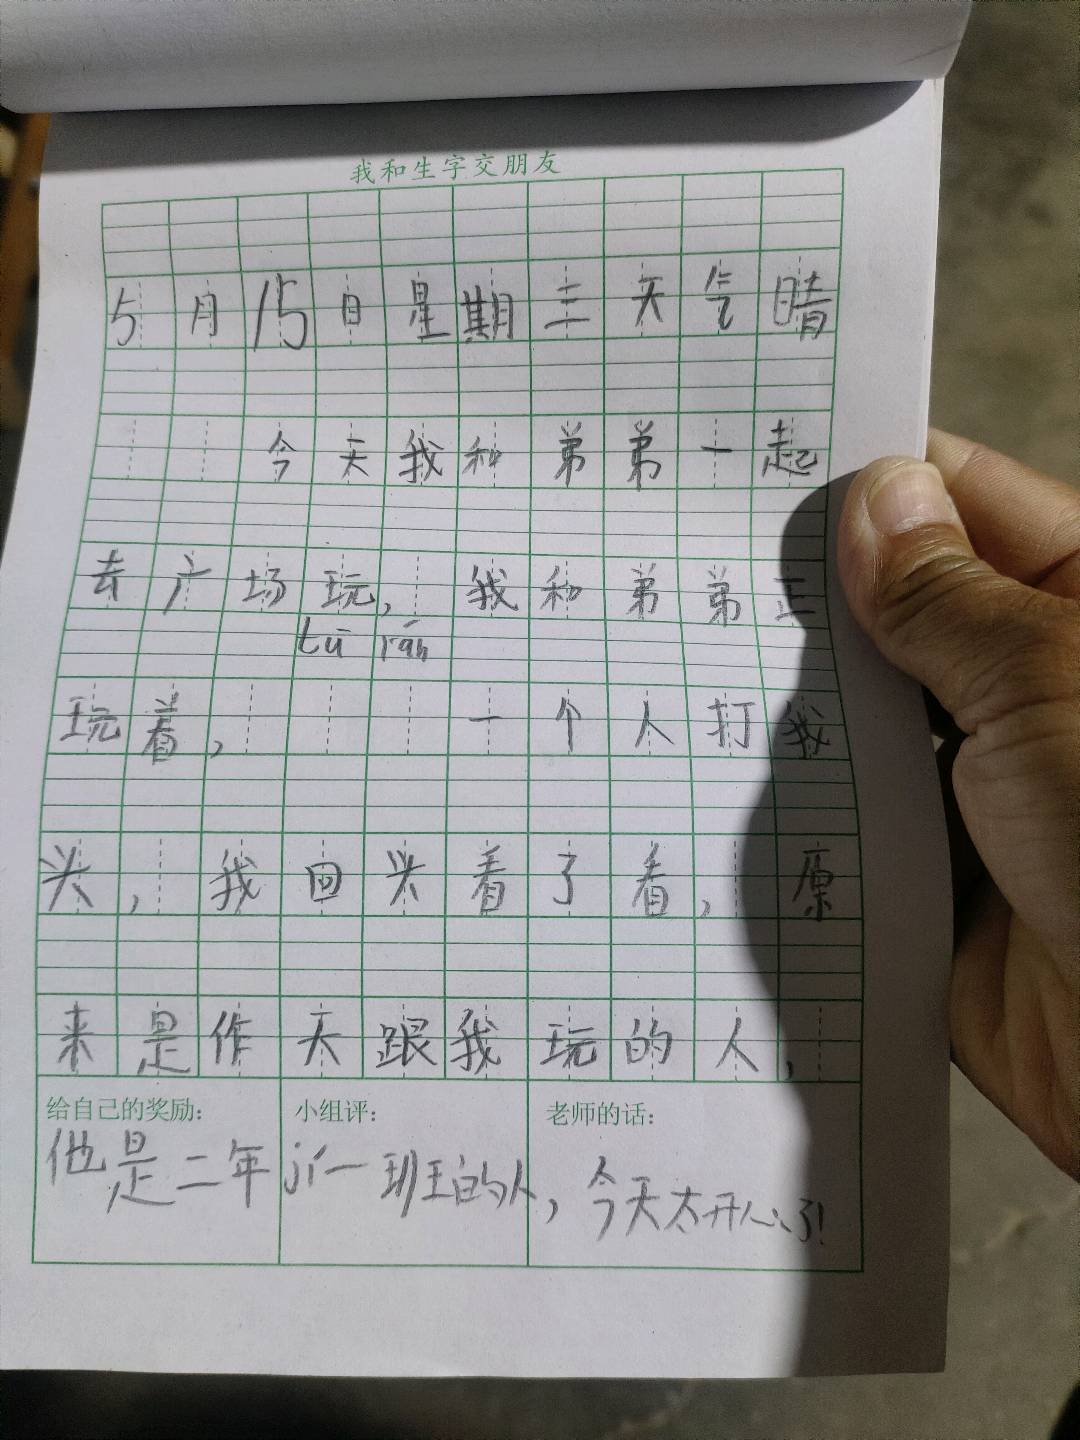 我和生字交朋友
5月15日星期三天气晴
今天我和弟弟一起
去广场玩,我和弟弟正
tū rán
玩着, 一个人打我
头,我回头看了看,原
来是作天跟我玩的人,
给自己的奖励: 小组评: 老师的话:
他是二年jí一班的人,今天太开心了!